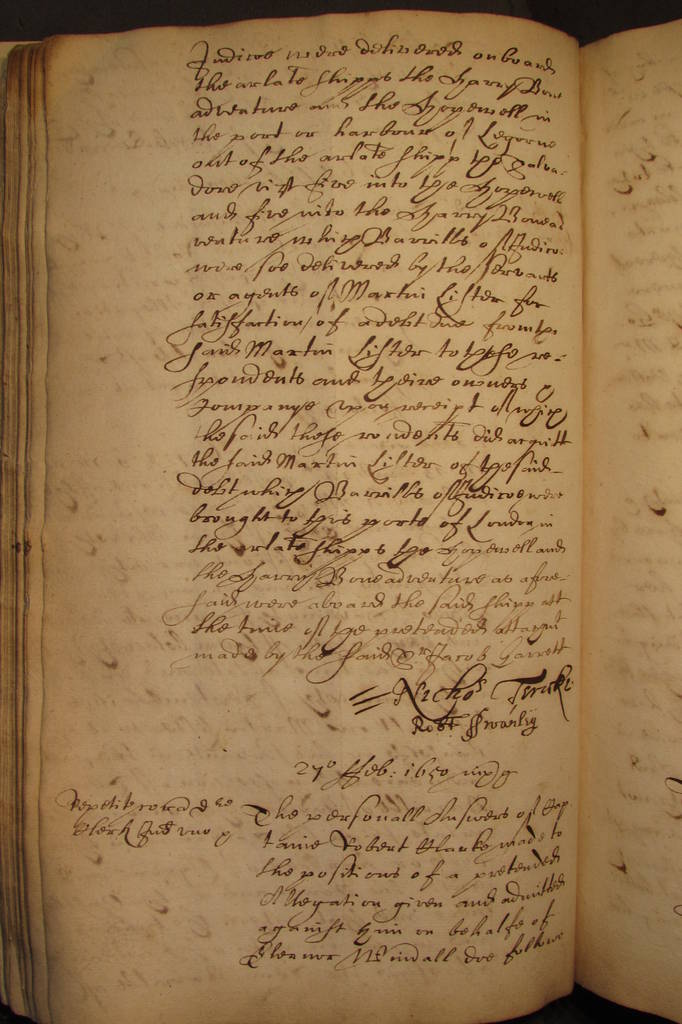 Indicoe were delivered onboard
the arlate shipps the Harry Bone
adventure and the Hopewell in
the port or harbour of Legorne
out of the arlate shipp the Salva-
dore vizt five into the Hopewell
and five into the Harry Bonead
venture which Barrills of Indico
were soe delivered by the servants
or agents of Martin Lister for
satisfaction of a debt due from the
said Martin Lister to these re-
spondents and theire owners
Companye upon receipt of which
the said these rendents did acquitt
the said Martin Lister of the said
debt which Barrills of Indicoe were
brought to this porte of London in
the arlate shipps the Hopewell and
the Harry Bone adventure as afore-
said were aboard the said shipp att
the time of the pretended attachmt
made by the said Jacob Garrett
Nicho:s
Robt: Swanly
27o ffeb: 1650
Repetit
Clerk
The personall Answers of Cap
taine Robert Clarke made to
the positions of a pretended
Allegation given and admitted
against him on behalfe of
Elernor Windall doe followe